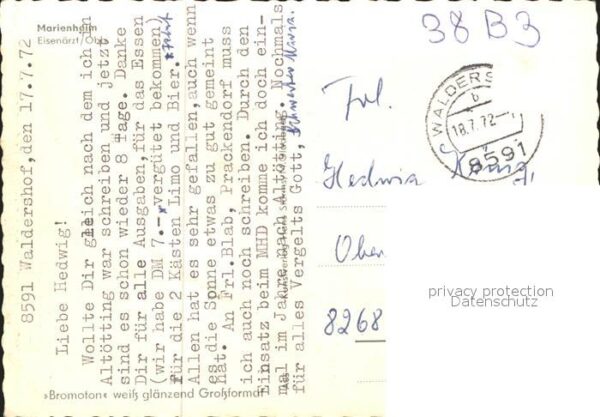 Marienheim
Eisenärzt/Obb
8591 Waldershof,den 17.7.72
Liebe Hedwig!
Wollte Dir gleich nach dem ich in
Altötting war schreiben und jetzt
sind es schon wieder 8 Tage. Danke
Dir für alle Ausgaben,für das Essen
(wir habe DM 7.- vergütet bekommen)
für die 2 Kästen Limo und Bier.
Allen hat es sehr gefallen,auch wenn
es die Sonne etwas zu gut gemeint
hat. An Frl.Blab, Prackendorf muss
ich auch noch schreiben. Durch den
Einsatz beim MHD komme ich doch ein-
mal im Jahre nach Altötting. Nochmals
für alles Vergelts Gott,
Schwester Maria.
»Bromoton« weiß glänzend Großformat
38 B3
WALDERS
b
18.7.72
8591
Frl.
Hedwig König,
Ober
8268
privacy protection
Datenschutz